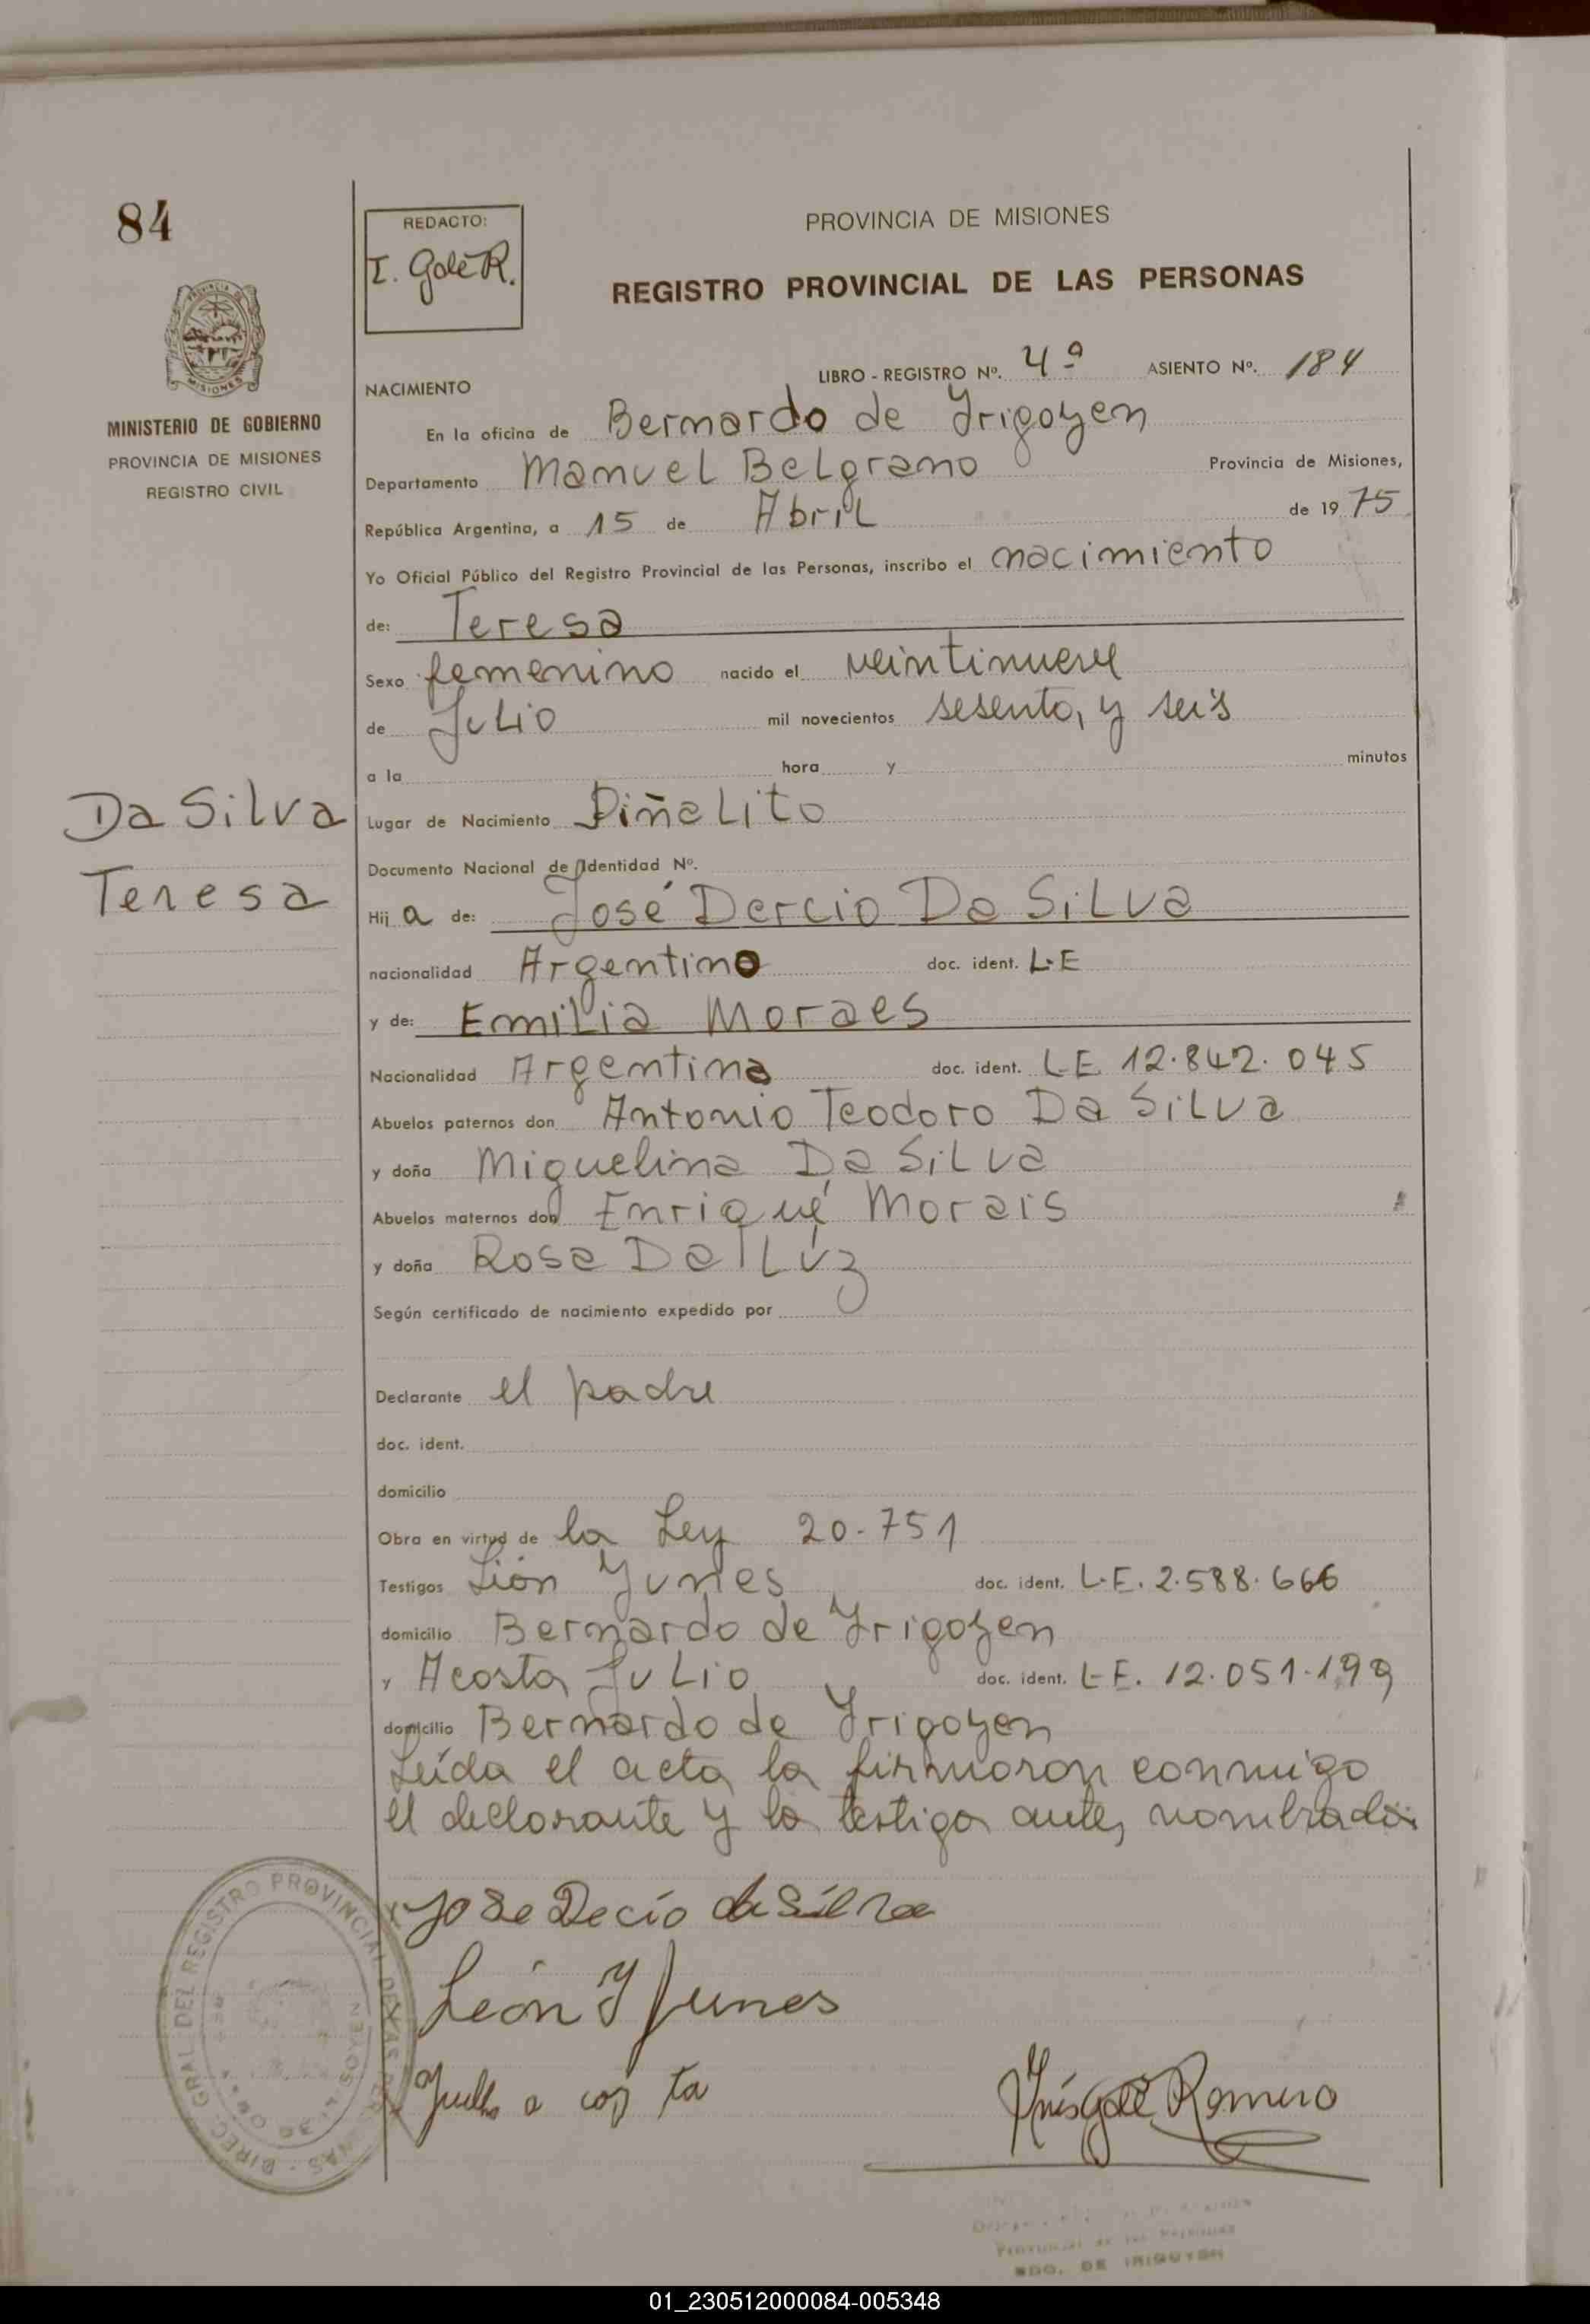 84
REDACTO:
I. Golé R.
PROVINCIA DE MISIONES
REGISTRO PROVINCIAL DE LAS PERSONAS
MINISTERIO DE GOBIERNO
PROVINCIA DE MISIONES
REGISTRO CIVIL
LIBRO - REGISTRO Nº. 4º ASIENTO Nº. 184
NACIMIENTO
En la oficina de Bernardo de Yrigoyen
Departamento Manuel Belgrano Provincia de Misiones,
República Argentina, a 15 de Abril de 1975
Yo Oficial Público del Registro Provincial de las Personas, inscribo el nacimiento
de: Teresa
Sexo femenino nacido el veintinueve
de Julio mil novecientos sesenta y seis
a la hora y minutos
Da Silva
Teresa
Lugar de Nacimiento Piñalito
Documento Nacional de Identidad Nº.
Hij a de: José Dercio Da Silva
nacionalidad Argentino doc. ident. L.E
y de: Emilia Moraes
Nacionalidad Argentina doc. ident. L.E. 12.842.045
Abuelos paternos don Antonio Teodoro Da Silva
y doña Miguelina Da Silva
Abuelos maternos don Enrique Morais
y doña Rosa Da Lúz
Según certificado de nacimiento expedido por
Declarante el padre
doc. ident.
domicilio
Obra en virtud de la Ley 20.751
Testigos León Yunes doc. ident. L.E. 2.588.666
domicilio Bernardo de Yrigoyen
y Acosta Julio doc. ident. L.E. 12.051.199
domicilio Bernardo de Yrigoyen
Leída el acta la firmaron conmigo
el declarante y los testigos antes nombrados
Jose Decio da Silva
León Y Junes
Inés Golé Romero
DIREC. GRAL. DEL REGISTRO PROVINCIAL DE LAS PERSONAS
BDO. DE IRIGOYEN
01_230512000084-005348